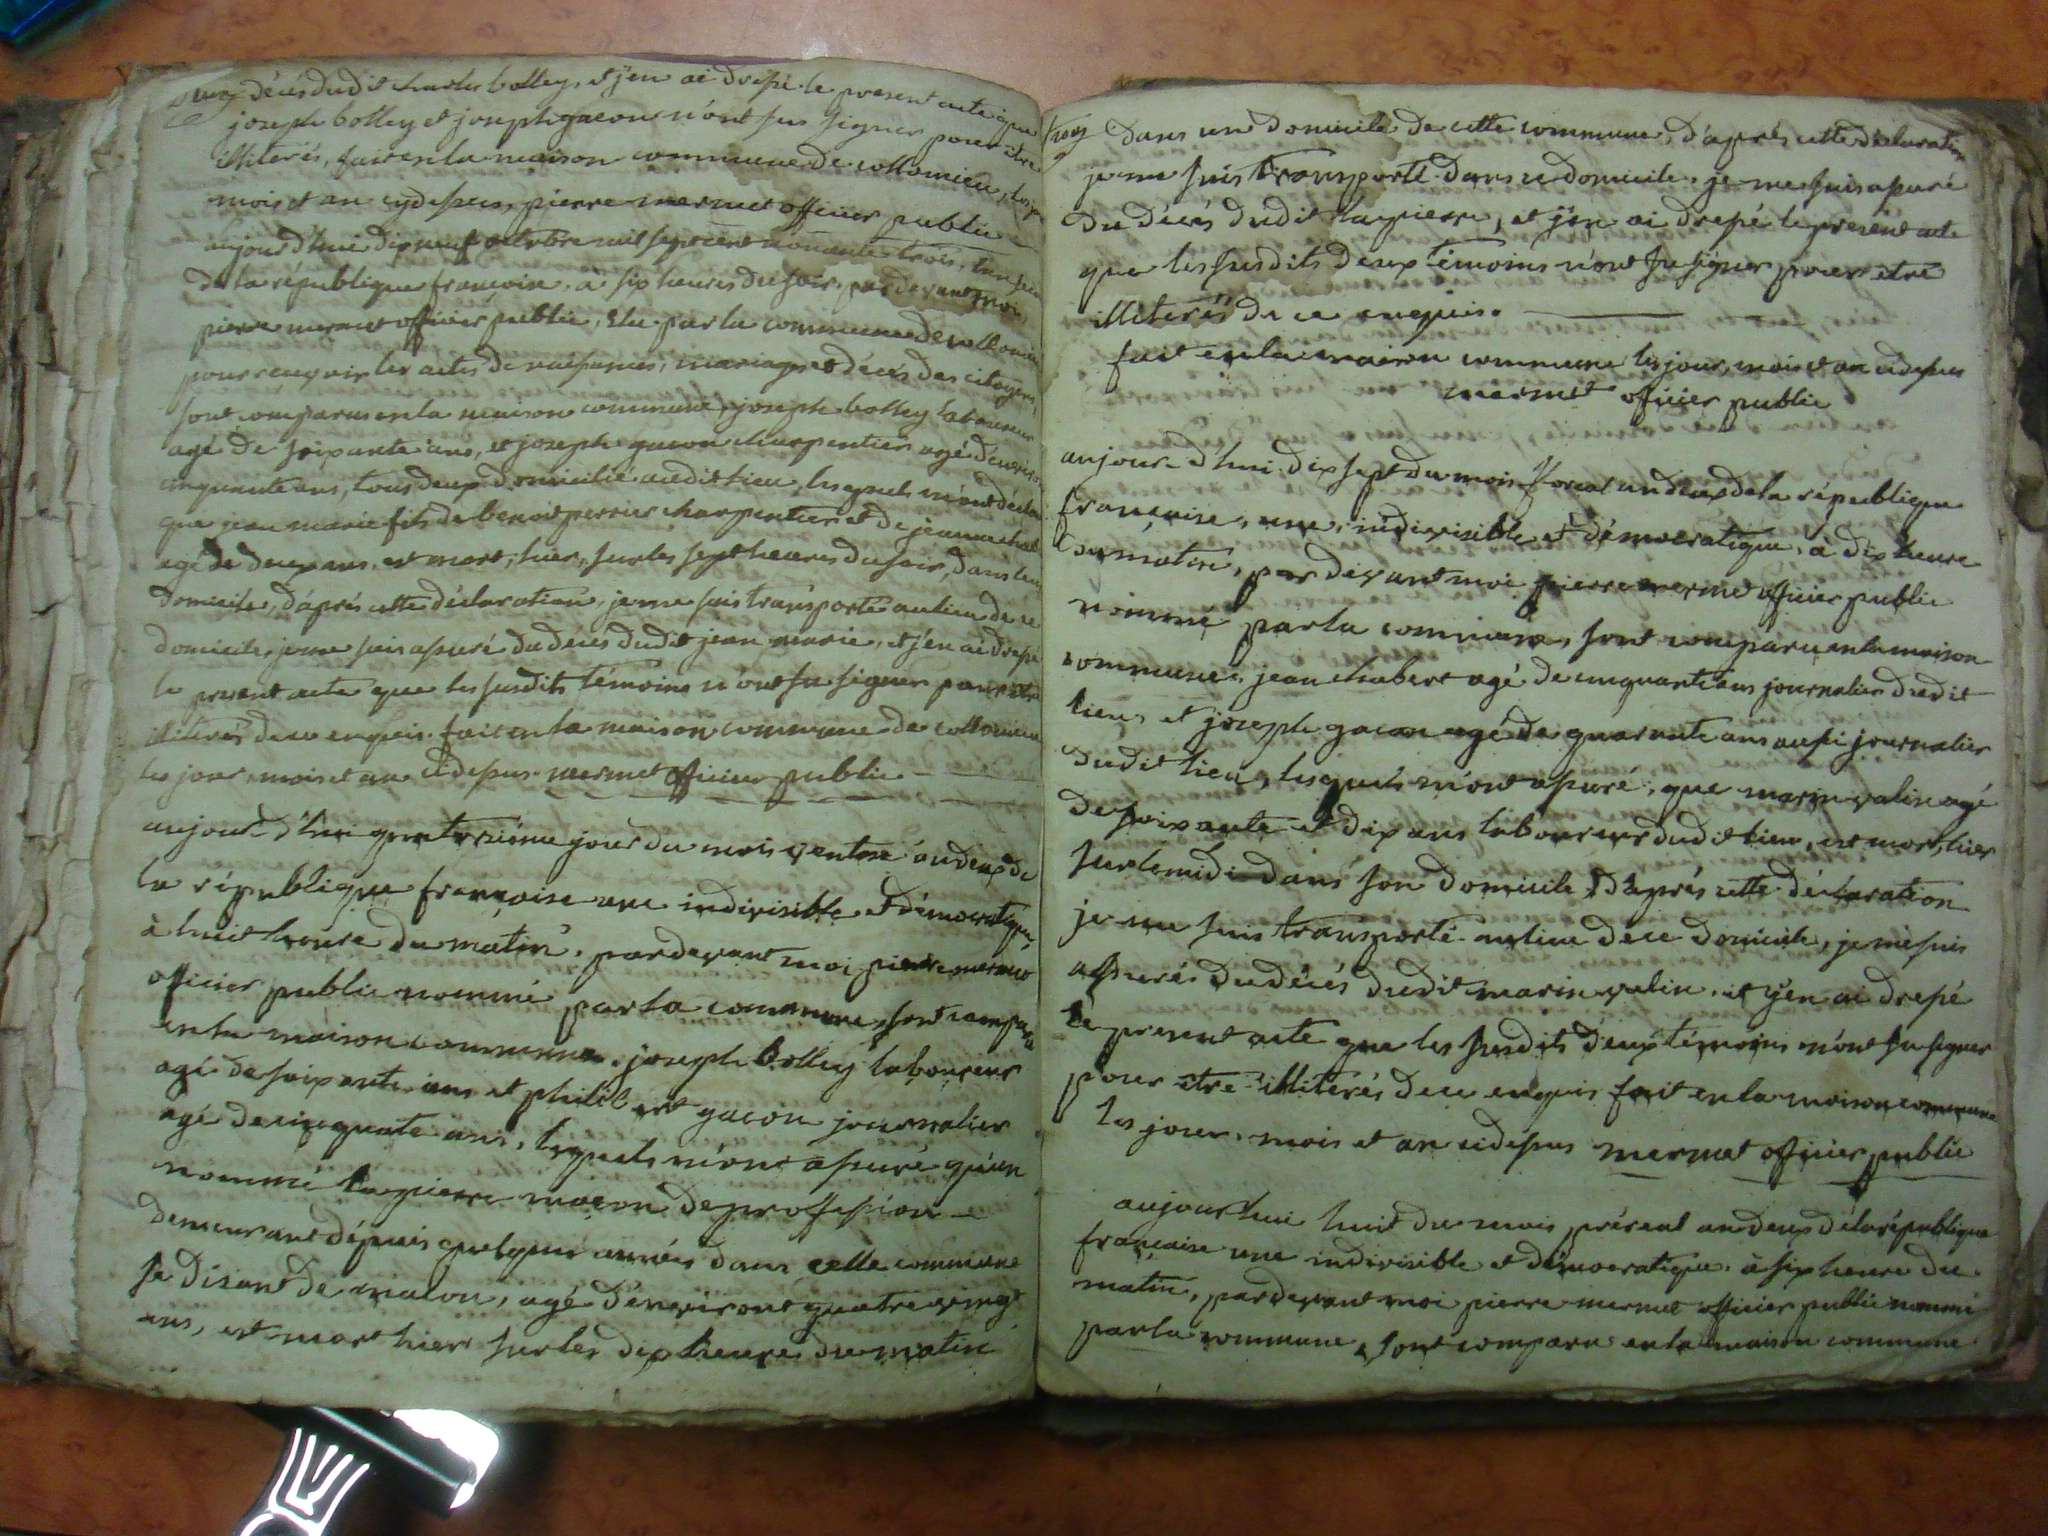 deux décès dudit charles bolley, et j'en ai drepé le present acte que
joseph bolley et joseph gacon n'ont su signer pour être
illiterés, fait en la maison commune de collomieu, les jour
mois et an cydepus, pierre mermet officier public
aujourd'hui dix neuf octobre mil sept cent nonante trois, l'an second
de la république françoise, a six heures du soir, par devant moi
pierre mermet officier public, élu par la commune de collomieu
pour recevoir les actes de naipances, mariages et décès des citoyens,
sont comparus en la maison commune, joseph bolley laboureur
agé de soixante ans, et joseph gacon charpentier agé d'environ
cinquante ans, tous deux domicilié audit lieu, lesquels m'ont déclaré
que jean marie fils de benoit perrier charpentier et de jeanne
agé de deux ans, est mort, hier, sur les sept heures du soir, dans leur
domicile, d'après cette déclaration, je me suis transporté au lieu de ce
domicile, je me suis apuré du décès dudit jean marie, et j'en ai drepé
le present acte que les susdits témoins n'ont su signer pour être
illiterés de ce enquis. fait en la maison commune de collomieu
les jour, mois et an cidepus. mermet officier public
aujourd'hui quatorzième jour du mois ventose an deux de
la république françoise une indivisible et démocratique,
à huit heure du matin, pardevant moi pierre mermet
officier public nommé par la commune, sont comparu
en la maison commune, joseph bolley laboureur
agé de soixante ans et philibert gacon journalier
agé de cinquate ans, lesquels m'ont apuré qu'un
nommé lapierre maçon de proffession
demeurant dépuis quelques années dans cette commune
se disant de macon, agé d'environt quatre vingt
ans, est mort hier sur les dix heures du matin
trois dans un domicile de cette commune, d'après cette déclaration
je me suis transporté dans ce domicile, je me suis apuré
du décès dudit lapierre, et j'en ai drepé le present acte
que les susdits deux témoins n'ont su signer pour etre
illiterés de ce enquis.
fait en la maison commune les jour, mois et an cidepus
mermet officier public
aujourd'hui dix sept du mois floreal an deux de la république
françoise, une, indivisible et démocratique, à dix heure
du matin, par devant moi pierre mermet officier public
nommé par la commune, sont comparu en la maison
commune, jean chabert agé de cinquante ans journalier dudit
lieu, et joseph gacon agé de quarante ans aupi journalier
dudit lieu, lesquels m'ont apuré, que marin valin agé
de soixante et dix ans laboureur dudit lieu, est mort, hier
sur le midi dans son domicile d'après cette déclaration
je me suis transporté au lieu de ce domicile, je me suis
apurés du décés dudit marin valin, et j'en ai drepé
le present acte que les susdits deux témoins n'ont su signer
pour etre illiterés de ce enquis fait en la maison commune
les jour, mois et an cidepus mermet officier public
aujour'hui huit du mois préreal an deux de la république
française une indivisible et démocratique, à six heure du
matin, pardevant moi pierre mermet officier public nommé
par la commune, sont comparu en la maison commune